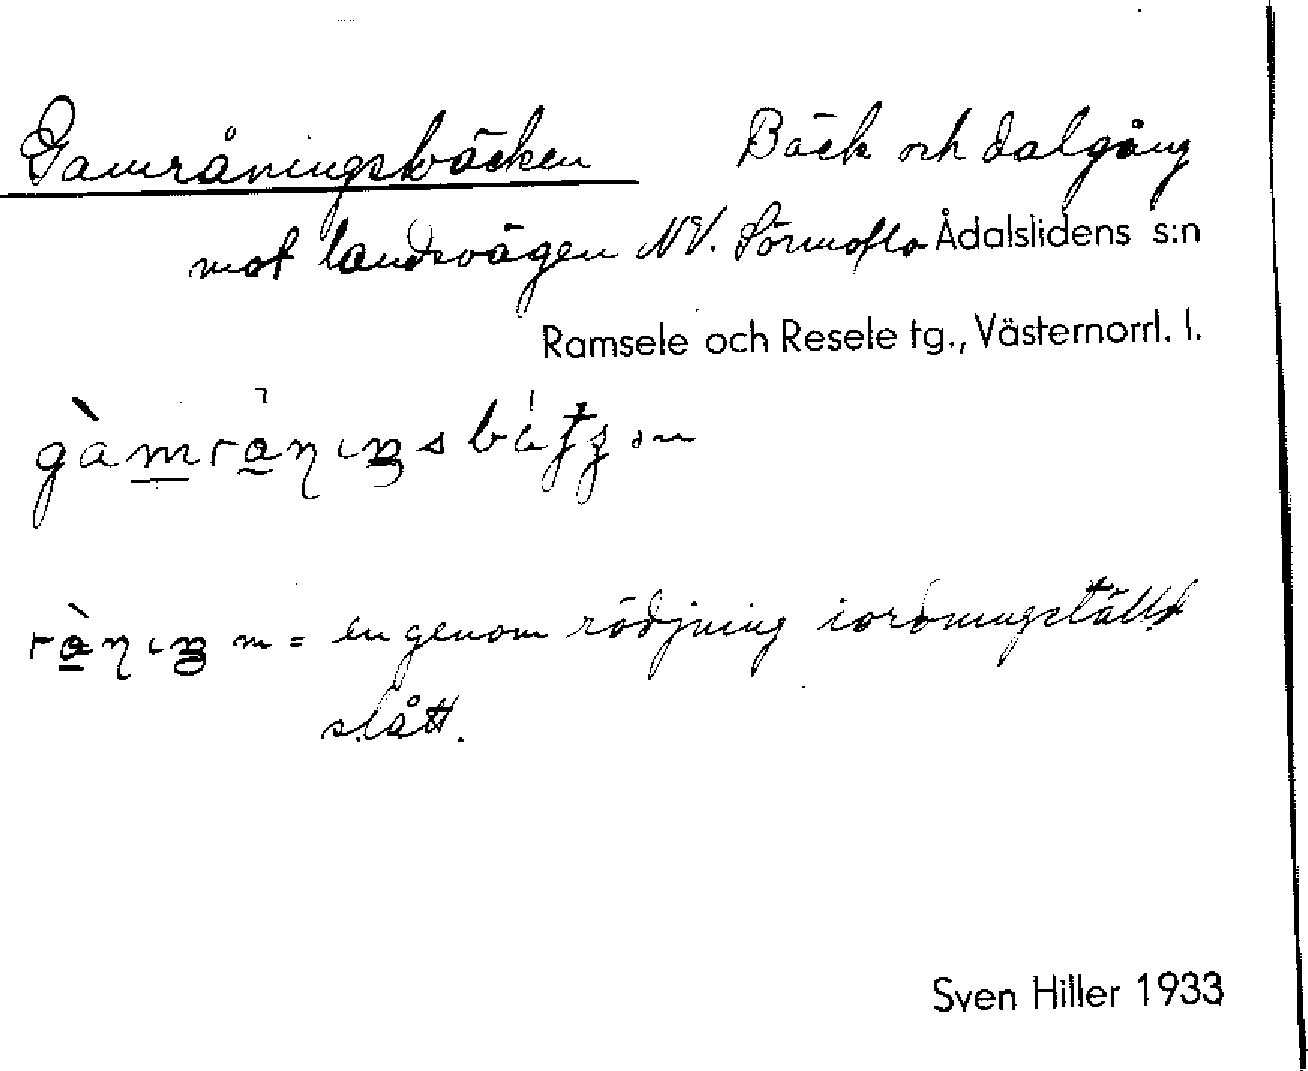 Gamråningsbäcken Bäck och dalgång
mot landsvägen NV. Sörmoflo Ådalslidens s:n
Ramsele och Resele tg., Västernorrl. l.
m = en genom rödjning iordningställd
slått.
Sven Hiller 1933